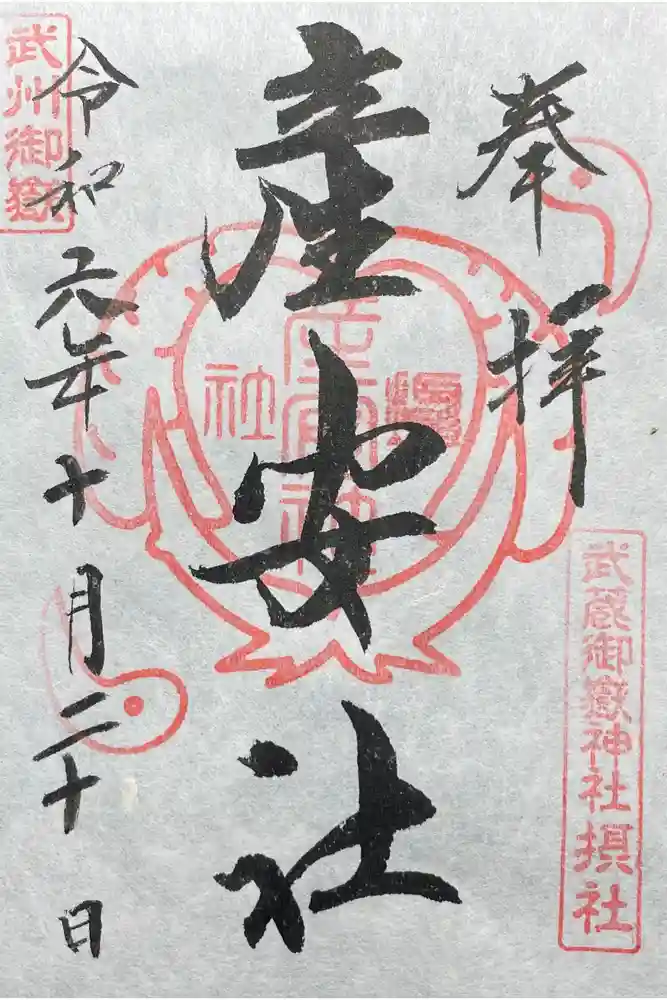 奉拝
武蔵御嶽神社摂社
産安社
摂社
産安社神社
武州御嶽
令和元年十月二十日